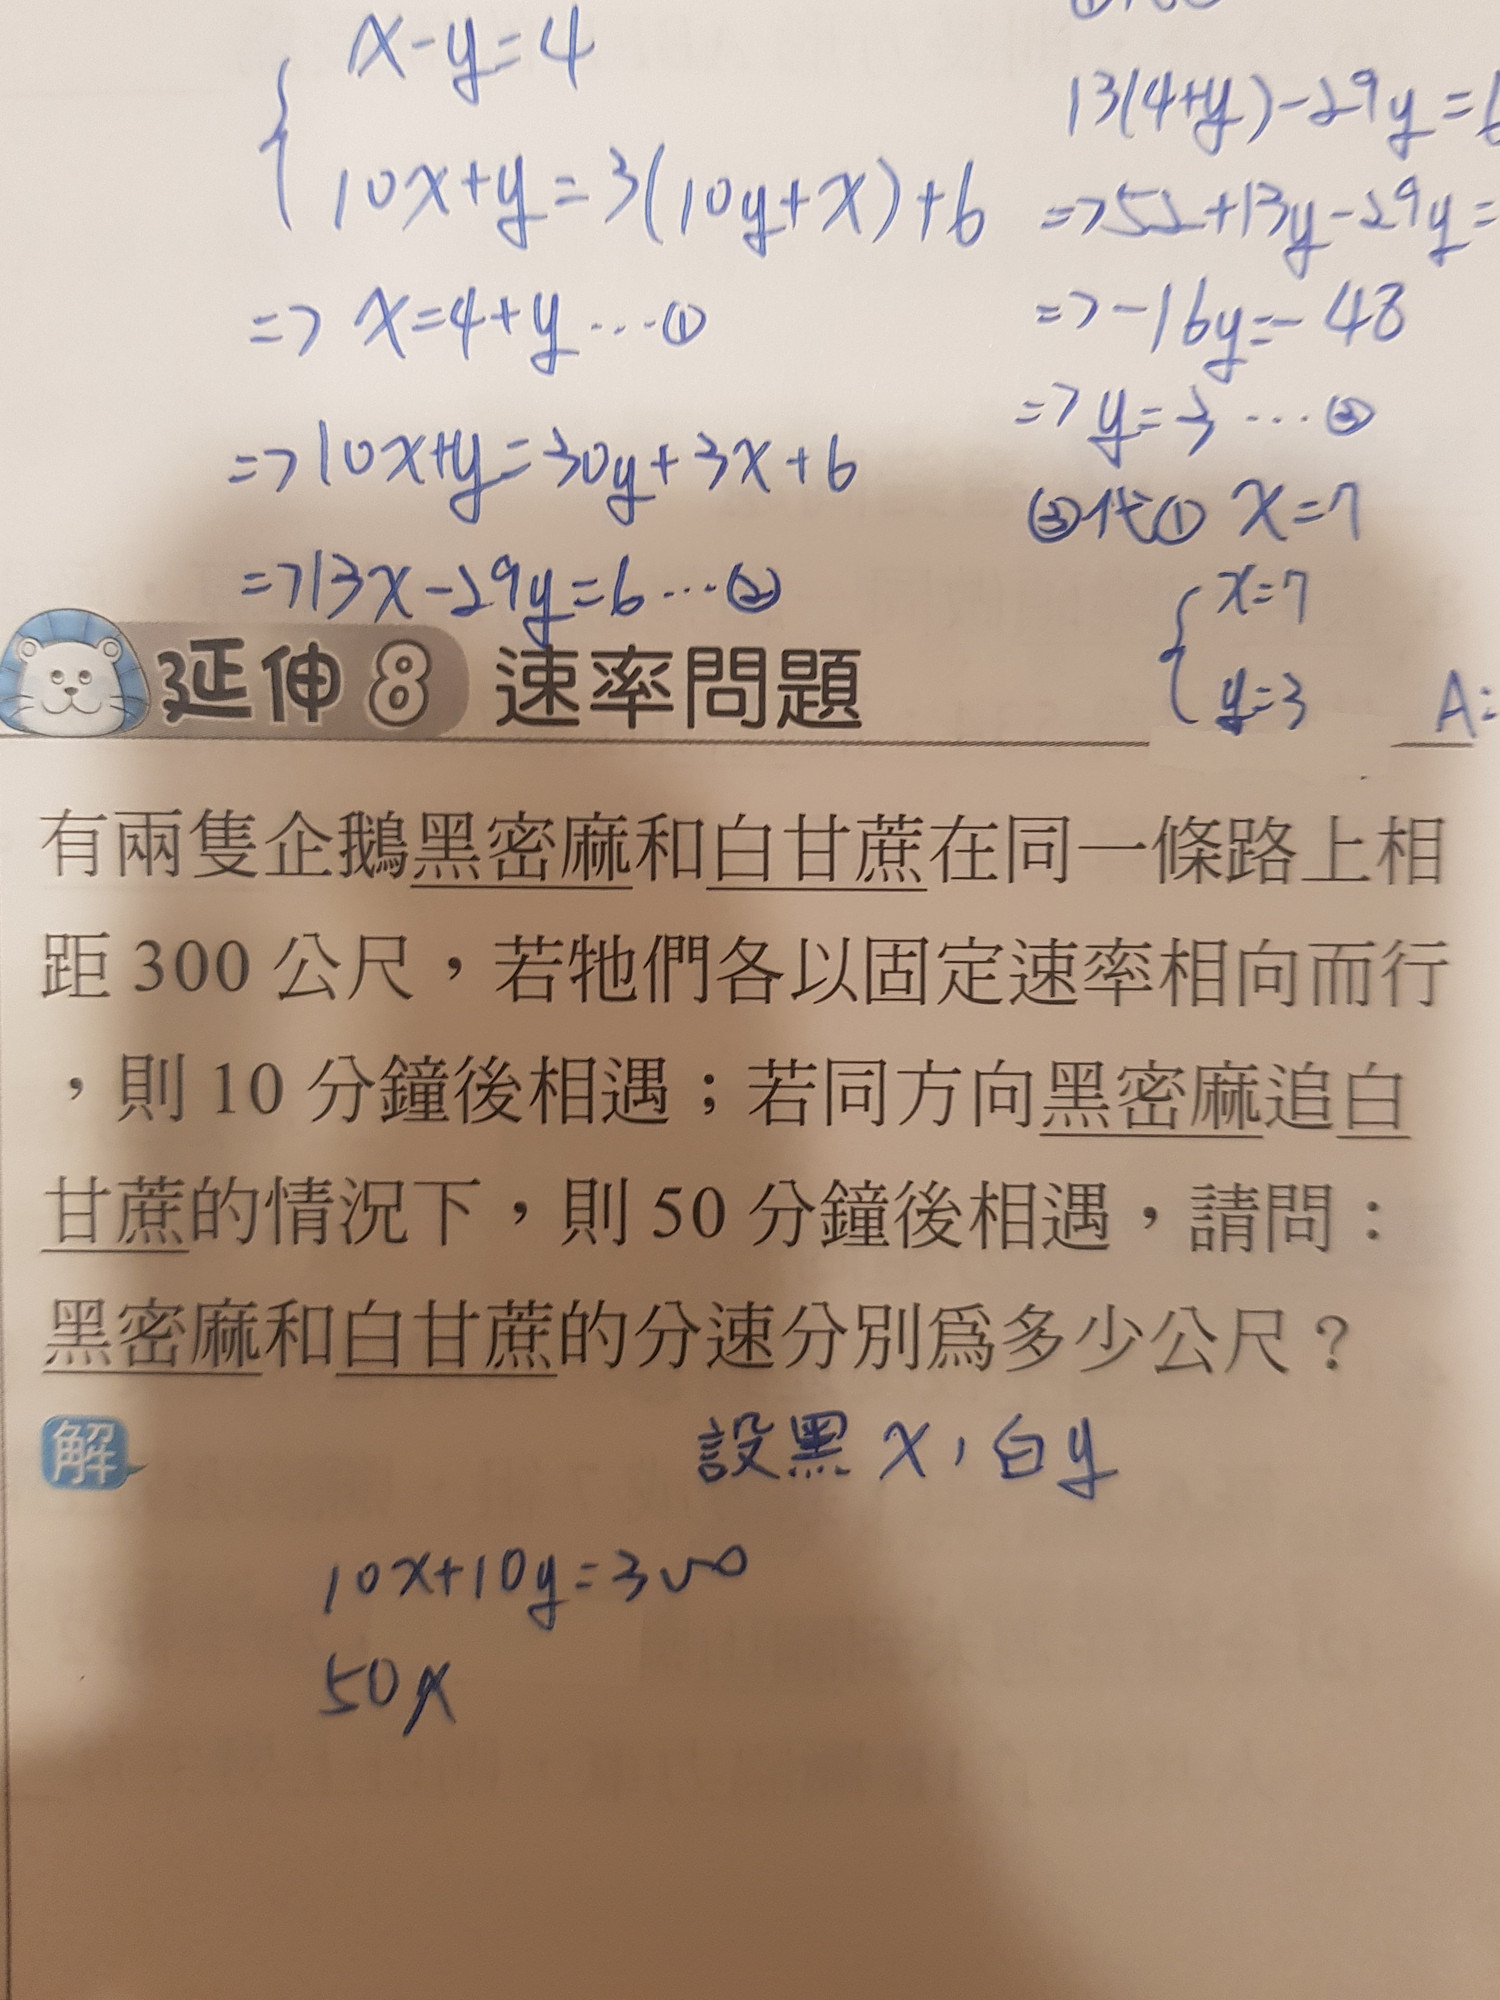 x-y=4
10x+y=3(10y+x)+6
=> x=4+y …①
=>10x+y=30y+3x+6
=>13x-29y=6…②
13(4+y)-29y=6
=>52+13y-29y=
=>-16y=-48
=>y=3 …③
③代① x=7
x=7
y=3
A:
延伸8 速率問題
有兩隻企鵝黑密麻和白甘蔗在同一條路上相
距 300 公尺，若牠們各以固定速率相向而行
，則 10 分鐘後相遇；若同方向黑密麻追白
甘蔗的情況下，則 50 分鐘後相遇，請問：
黑密麻和白甘蔗的分速分別爲多少公尺？
解
設黑 x，白y
10x+10y=300
50x